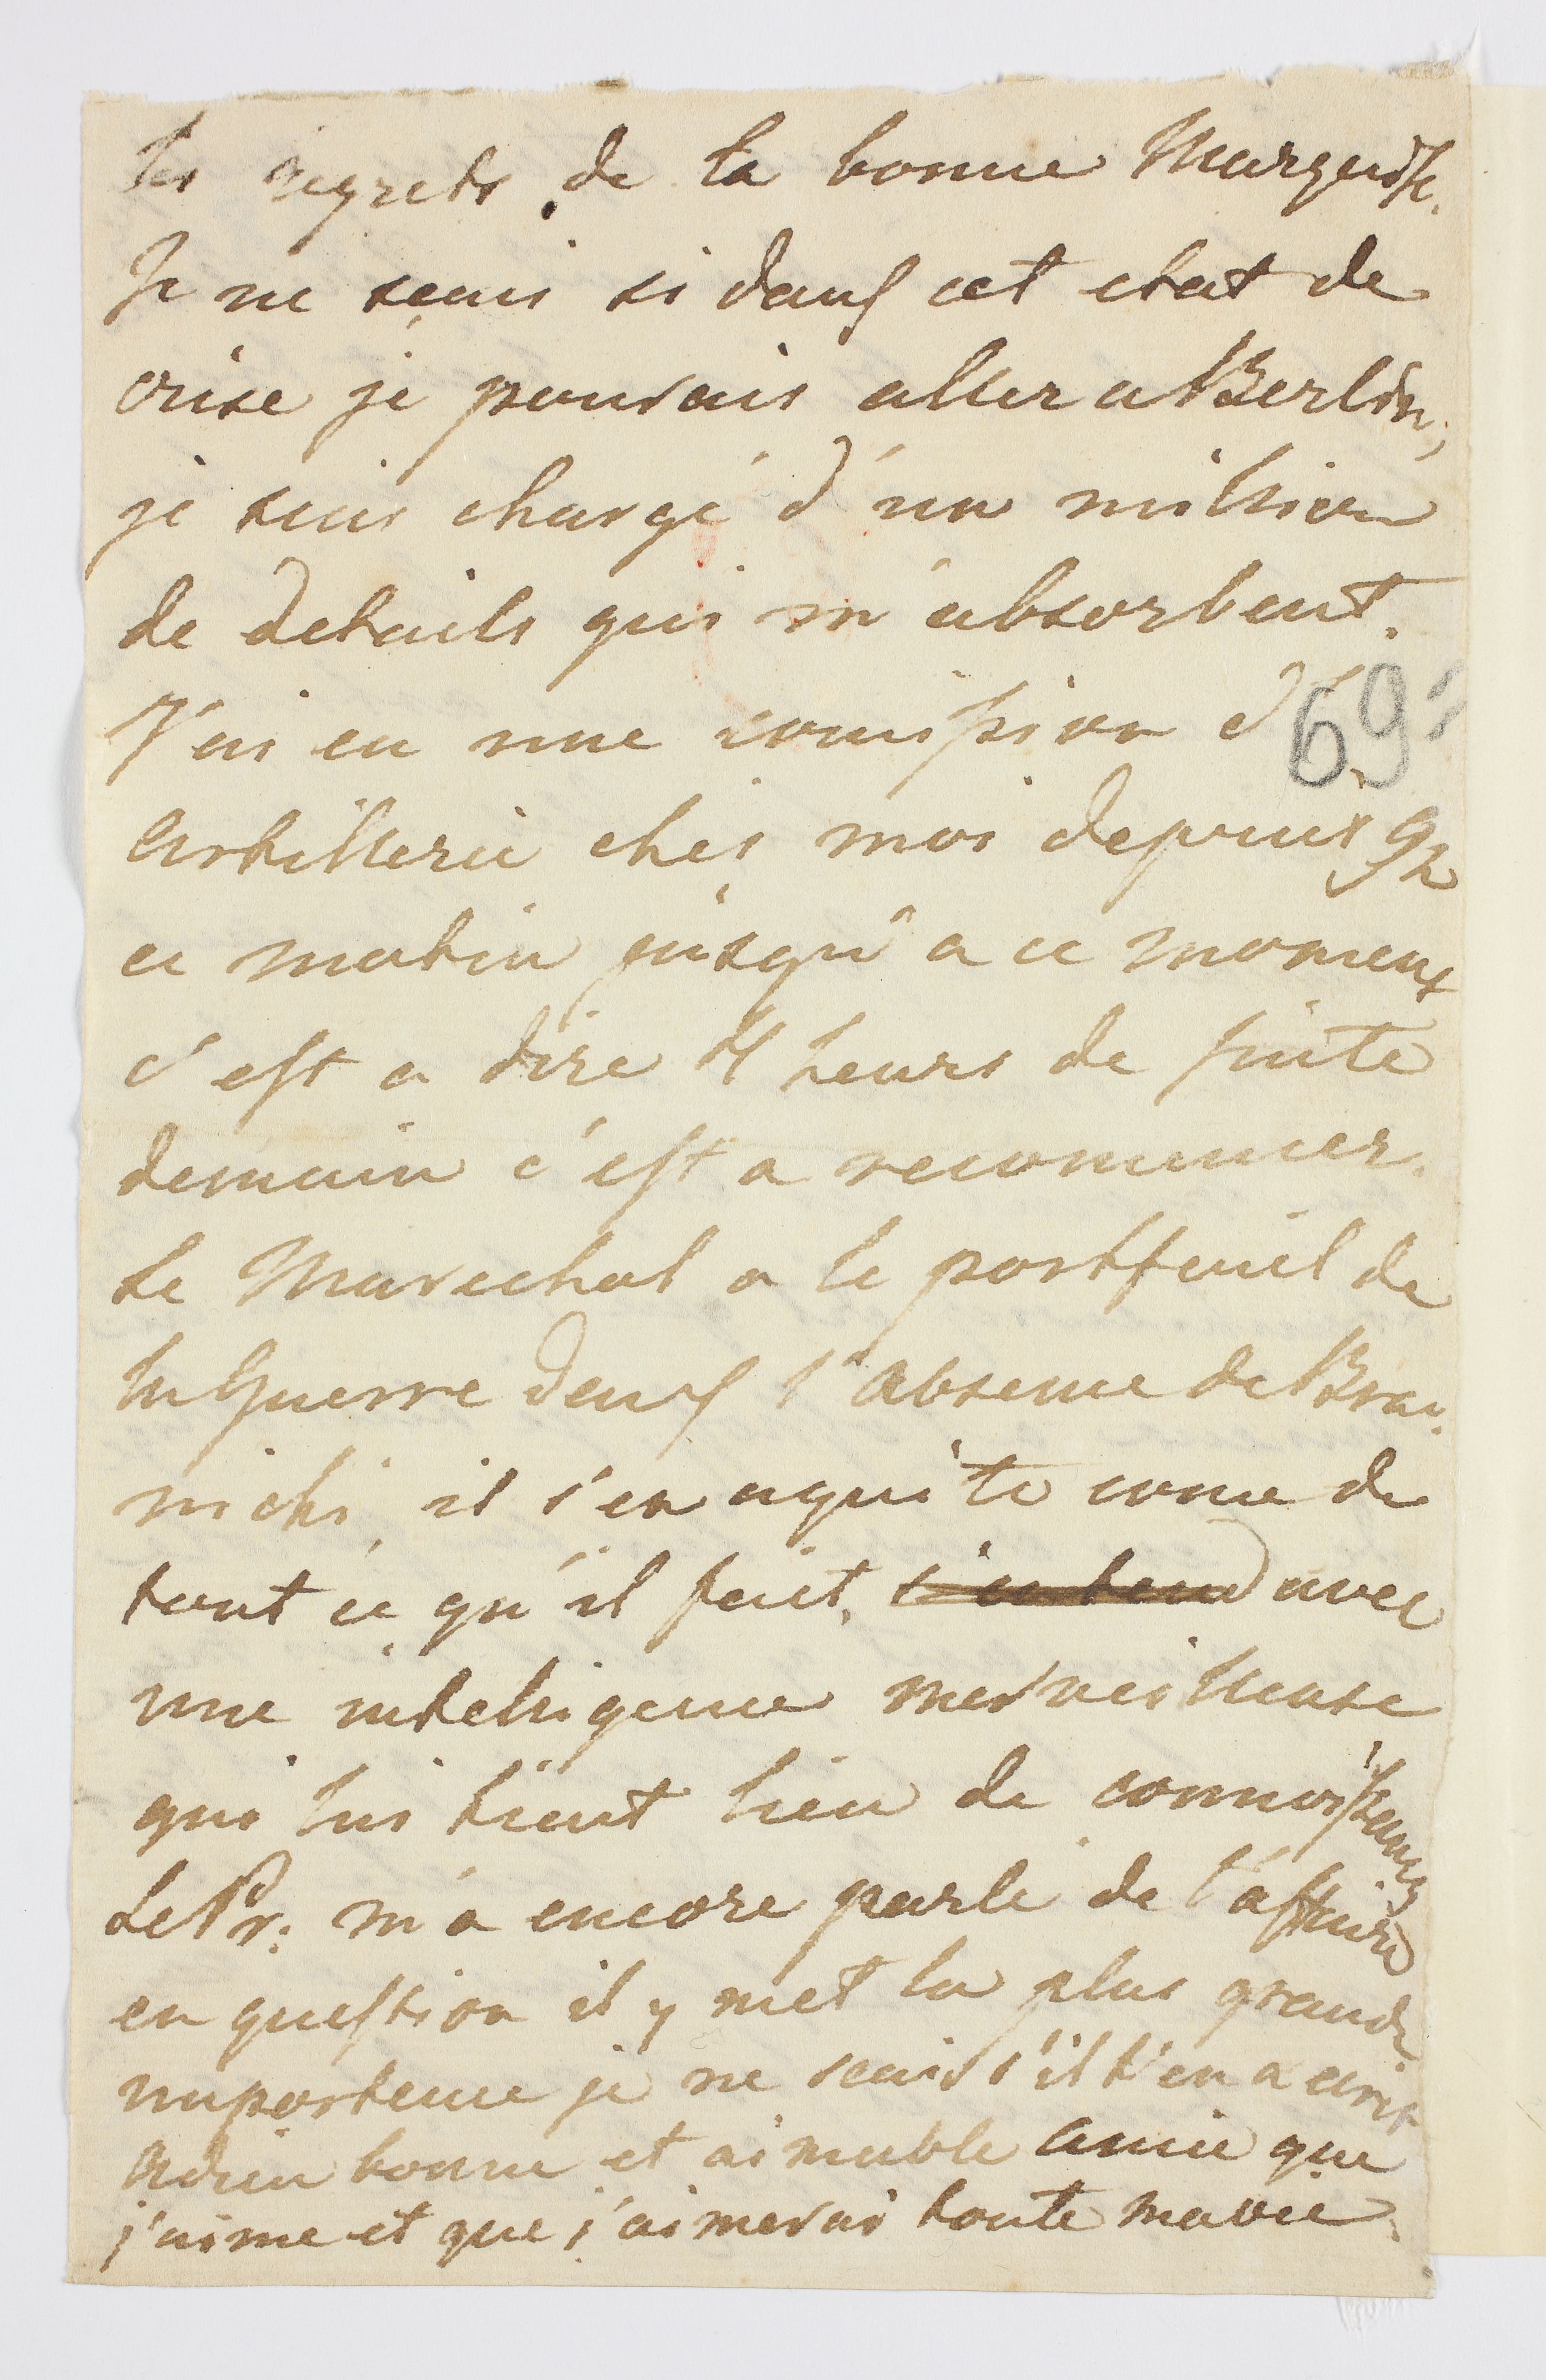 les regrets de la bonne Marquise.
Je ne scais si dans cet etat de
crise je pourais aller a Berlin,
je suis chargé d'un million
de details qui m'absorbent.
J'ai eu une comission d'
69
Artillerie chez moi depuis 9 h
ce matin jusqu'a ce moment
c'est a dire 4 heurs de suite
demain c'est a recommencer.
Le Marechal a le portfeuil de
la Guerre dans l'absence de Bra-
nicki, il s'en aquite come de
tout ce qu'il fait, s'entend avec
une intelligence merveilleuse
qui lui tient lieu de connoissances
Le Pr: m'a encore parlé de l'affaire
en question il y met la plus grande
importence je ne scais s'il t'en a ecrit
Adieu bonne et aimable amie que
j'aime et que j'aimerai toute ma vie.